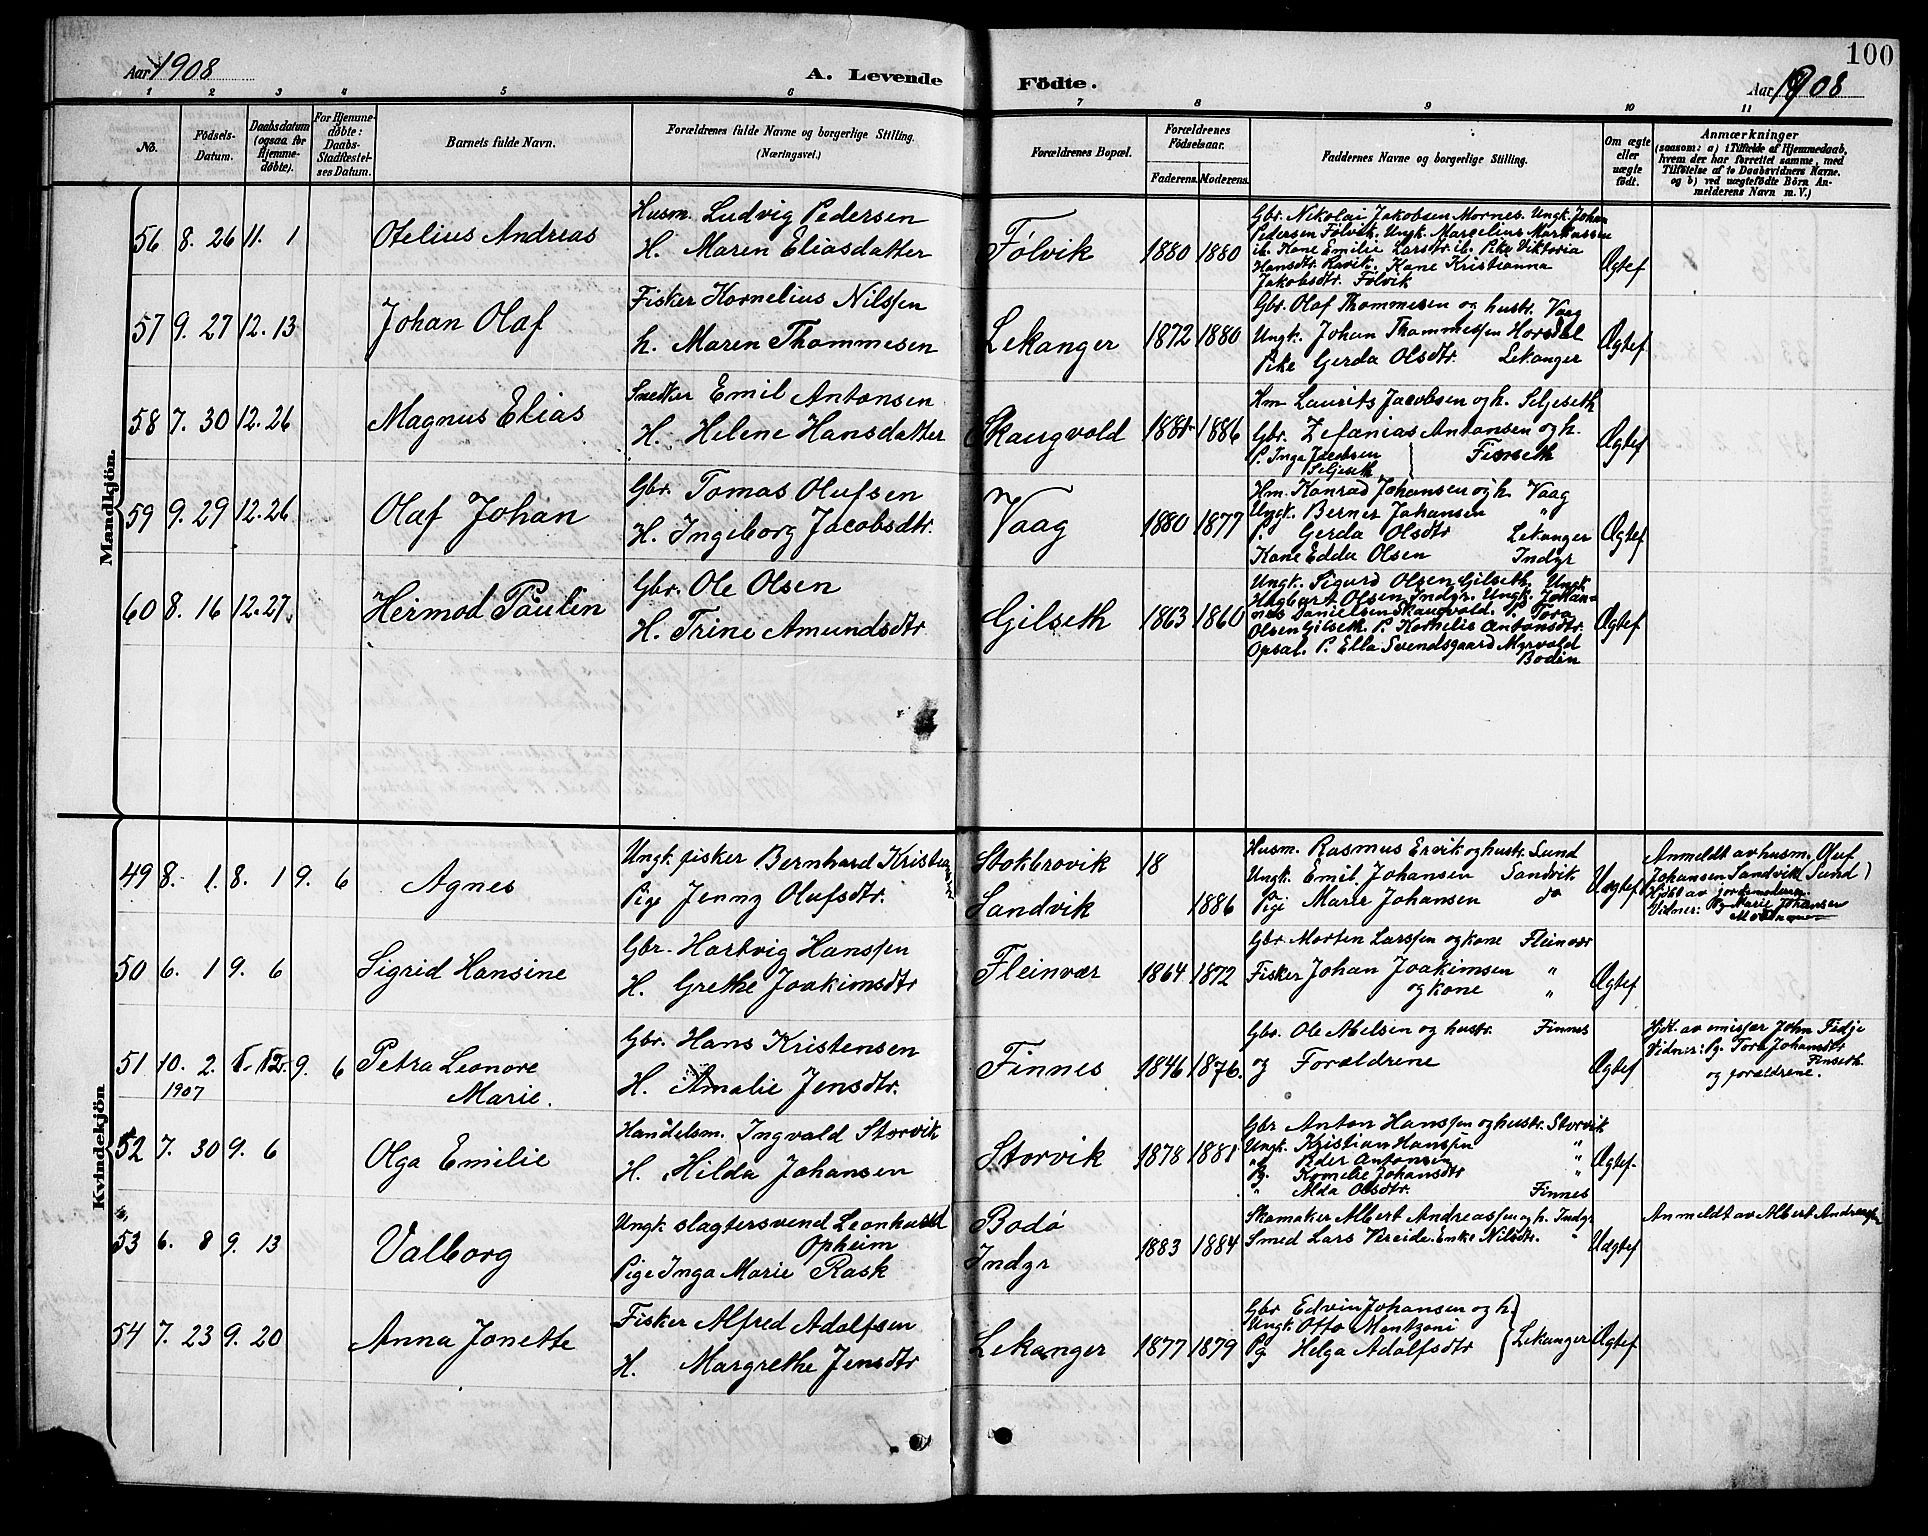 100
Aar 1908
A. Levende
Födte.
Aar 1908
1 2 3 4 5 6 7 8 9 10 11
No.
Födsels-Datum.
Daabsdatum (ogsaa for Hjemme-döbte).
For Hjemme-döbte: Daabs-Stadfæstel-ses Datum.
Barnets fulde Navn.
Forældrenes fulde Navne og borgerlige Stilling.
(Næringsvei.)
Forældrenes Bopæl.
Forældrenes Födselsaar.
Faderens. Moderens.
Faddernes Navne og borgerlige Stilling.
Om ægte eller uægte födt.
Anmærkninger
(saasom: a) i Tilfælde af Hjemmedaab,
hvem der har forrettet samme, med
Tilföielse af to Daabsvidners Navne.
og b) ved uægtefödte Börn An-
melderens Navn m. V.)
Mandkjön.
56 8. 26 11. 1 Otelius Andreas
Husm. Ludvig Pedersen
H. Maren Eliasdatter
Følvik 1880 1880
Gbr. Nikolai Jakobsen Mornes. Ungk. Johan
Pedersen Følvik. Ungk. Marcelius Markussen
ib. Kone Emilie Larsdtr. ib. Pike Viktoria
Hansdtr. Kone Kristianna
Jakobsdtr. Følvik
Ægtef
57 9. 27 12. 13 Johan Olaf
Fisker Kornelius Nilssen
h. Maren Thommesen
Lekanger 1872 1880
Gbr. Olaf Thommesen og hustr. Vaag
Ungk. Johan Thommessen Horsdal
Pike Gerda Olsdtr. Lekanger
Ægtef
58 7. 30 12. 26 Magnus Elias
Snedker Emil Antonsen
H. Helene Hansdatter
Skaugvold 1881 1886
Hm Laurits Jacobsen og h. Seljeseth
Gbr. Zefanias Antonsen og h.
P. Inga Jacobsen Finseth
Seljeseth
Ægtef
59 9. 29 12. 26 Olaf Johan
Gbr. Tomas Olufsen
H. Ingeborg Jacobsdtr.
Vaag 1880 1877
Hm. Konrad Johansen og h. Vaag
Ungk. Berner Johansen "
P. Gerda Olsdtr Lekanger
Kone Edda Olsen Indyr
Ægtef
60 8. 16 12. 27 Hermod Paulin
Gbr. Ole Olsen
H. Trine Amundsdtr
Gilseth 1863 1860
Ungk. Sigurd Olsen Gilseth. Ungk.
Hagbart Olsen Indyr. Ungk. Johan-
nes Danielsen Skaugvold. P. Tora
Olsen Gilseth. P. Kornelie Antonsdtr.
Opsal. P. Ella Svendsgaard Myrvold
Bodin
Ægtef
Kvindekjön
49 8. 1. 8. 1 9. 6 Agnes
Ungk. fisker Bernhard
Pige Jenny Olufsdtr.
Stokbrovik 18
Sandvik 1886
Husm. Rasmus Ervik og hustr. Sund
Ungk. Emil Johansen Sandvik
Pige Marie Johansen do
Uægtef
Anmeldt av husm. Oluf
Johansen Sandvik Sund)
Hjdbt av jordemoderen
Vidner: Pg Marie Johansen
50 6. 1 9. 6 Sigrid Hansine
Gbr. Hartvig Hanssen
H. Grethe Joakimsdtr
Fleinvær 1864 1872
Gbr Morten Larssen og kone Fleinvær
Fisker Johan Joakimsen "
og kone "
Ægtef
51 10. 2. 1. 12. 9. 6 Petra Leonore
1907 Marie.
Gbr. Hans Kristensen
H. Amalie Jensdtr.
Finnes 1846 1876.
Gbr. Ole Abelsen og hustr. Finnes
og Forældrene
Ægtef
Hjd. av emissær John Fidje
Vidner: Pg. Tora Johansdtr
Finseth
og forældrene.
52 7. 30 9. 6 Olga Emilie
Handelsm. Ingvald Storvik
H. Hilda Johansen
Storvik 1878 1881
Gbr Anton Hanssen og hustr. Storvik
Ungk. Kristian Hanssen "
" Peder Antonsen "
Pg. Kornelie Johansdtr "
" Alda Olsdtr. Finnes
Ægtef.
53 6. 8 9. 13 Valborg
Ungk. slagtersvend Leonhard
Opheim
Pige Inga Marie Rask
Bodö 1883 1884
Indyr
Skomaker Albert Andreassen og h. Indyr
Smed Lars Vereide. Enke Nilsdtr. "
Uægtef
Anmeldt av Albert Andreassen
54 7. 23 9. 20 Anna Jonette
Fisker Alfred Adolfsen
H. Margrethe Jensdtr
Lekanger 1877 1879
Gbr Edvin Johansen og h.
Ungk Otto Mentzoni
Pg Helga Adolfsdtr Lekanger
Ægtef